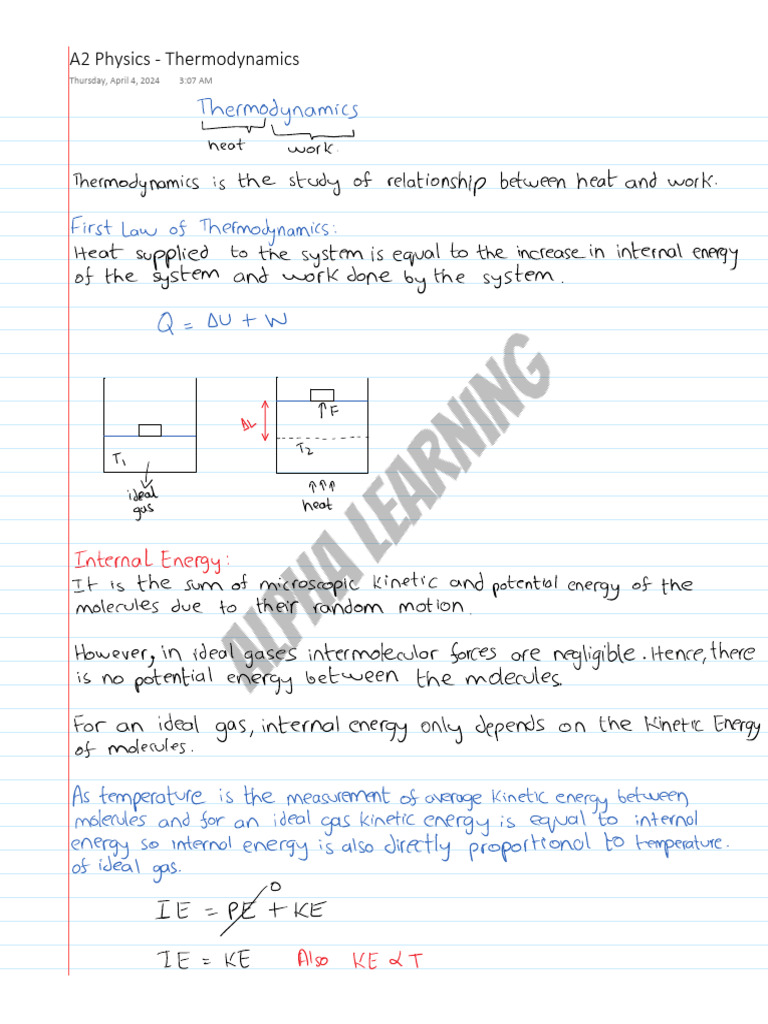 A2 Physics - Thermodynamics
Thursday, April 4, 2024 3:07 AM
Thermodynamics
heat work.
Thermodynamics is the study of relationship between heat and work.
First Law of Thermodynamics:
Heat supplied to the system is equal to the increase in internal energy
of the system and work done by the system.
Q = ΔU + W
F
ΔL
T1
T2
ideal
gas
heat
ALPHA LEARNING
Internal Energy:
It is the sum of microscopic kinetic and potential energy of the
molecules due to their random motion.
However, in ideal gases intermolecular forces are negligible. Hence, there
is no potential energy between the molecules.
For an ideal gas, internal energy only depends on the Kinetic Energy
of molecules.
As temperature is the measurement of average kinetic energy between
molecules and for an ideal gas kinetic energy is equal to internal
energy so internal energy is also directly proportional to temperature.
of ideal gas.
0
IE = PE + KE
IE = KE Also KE ∝ T